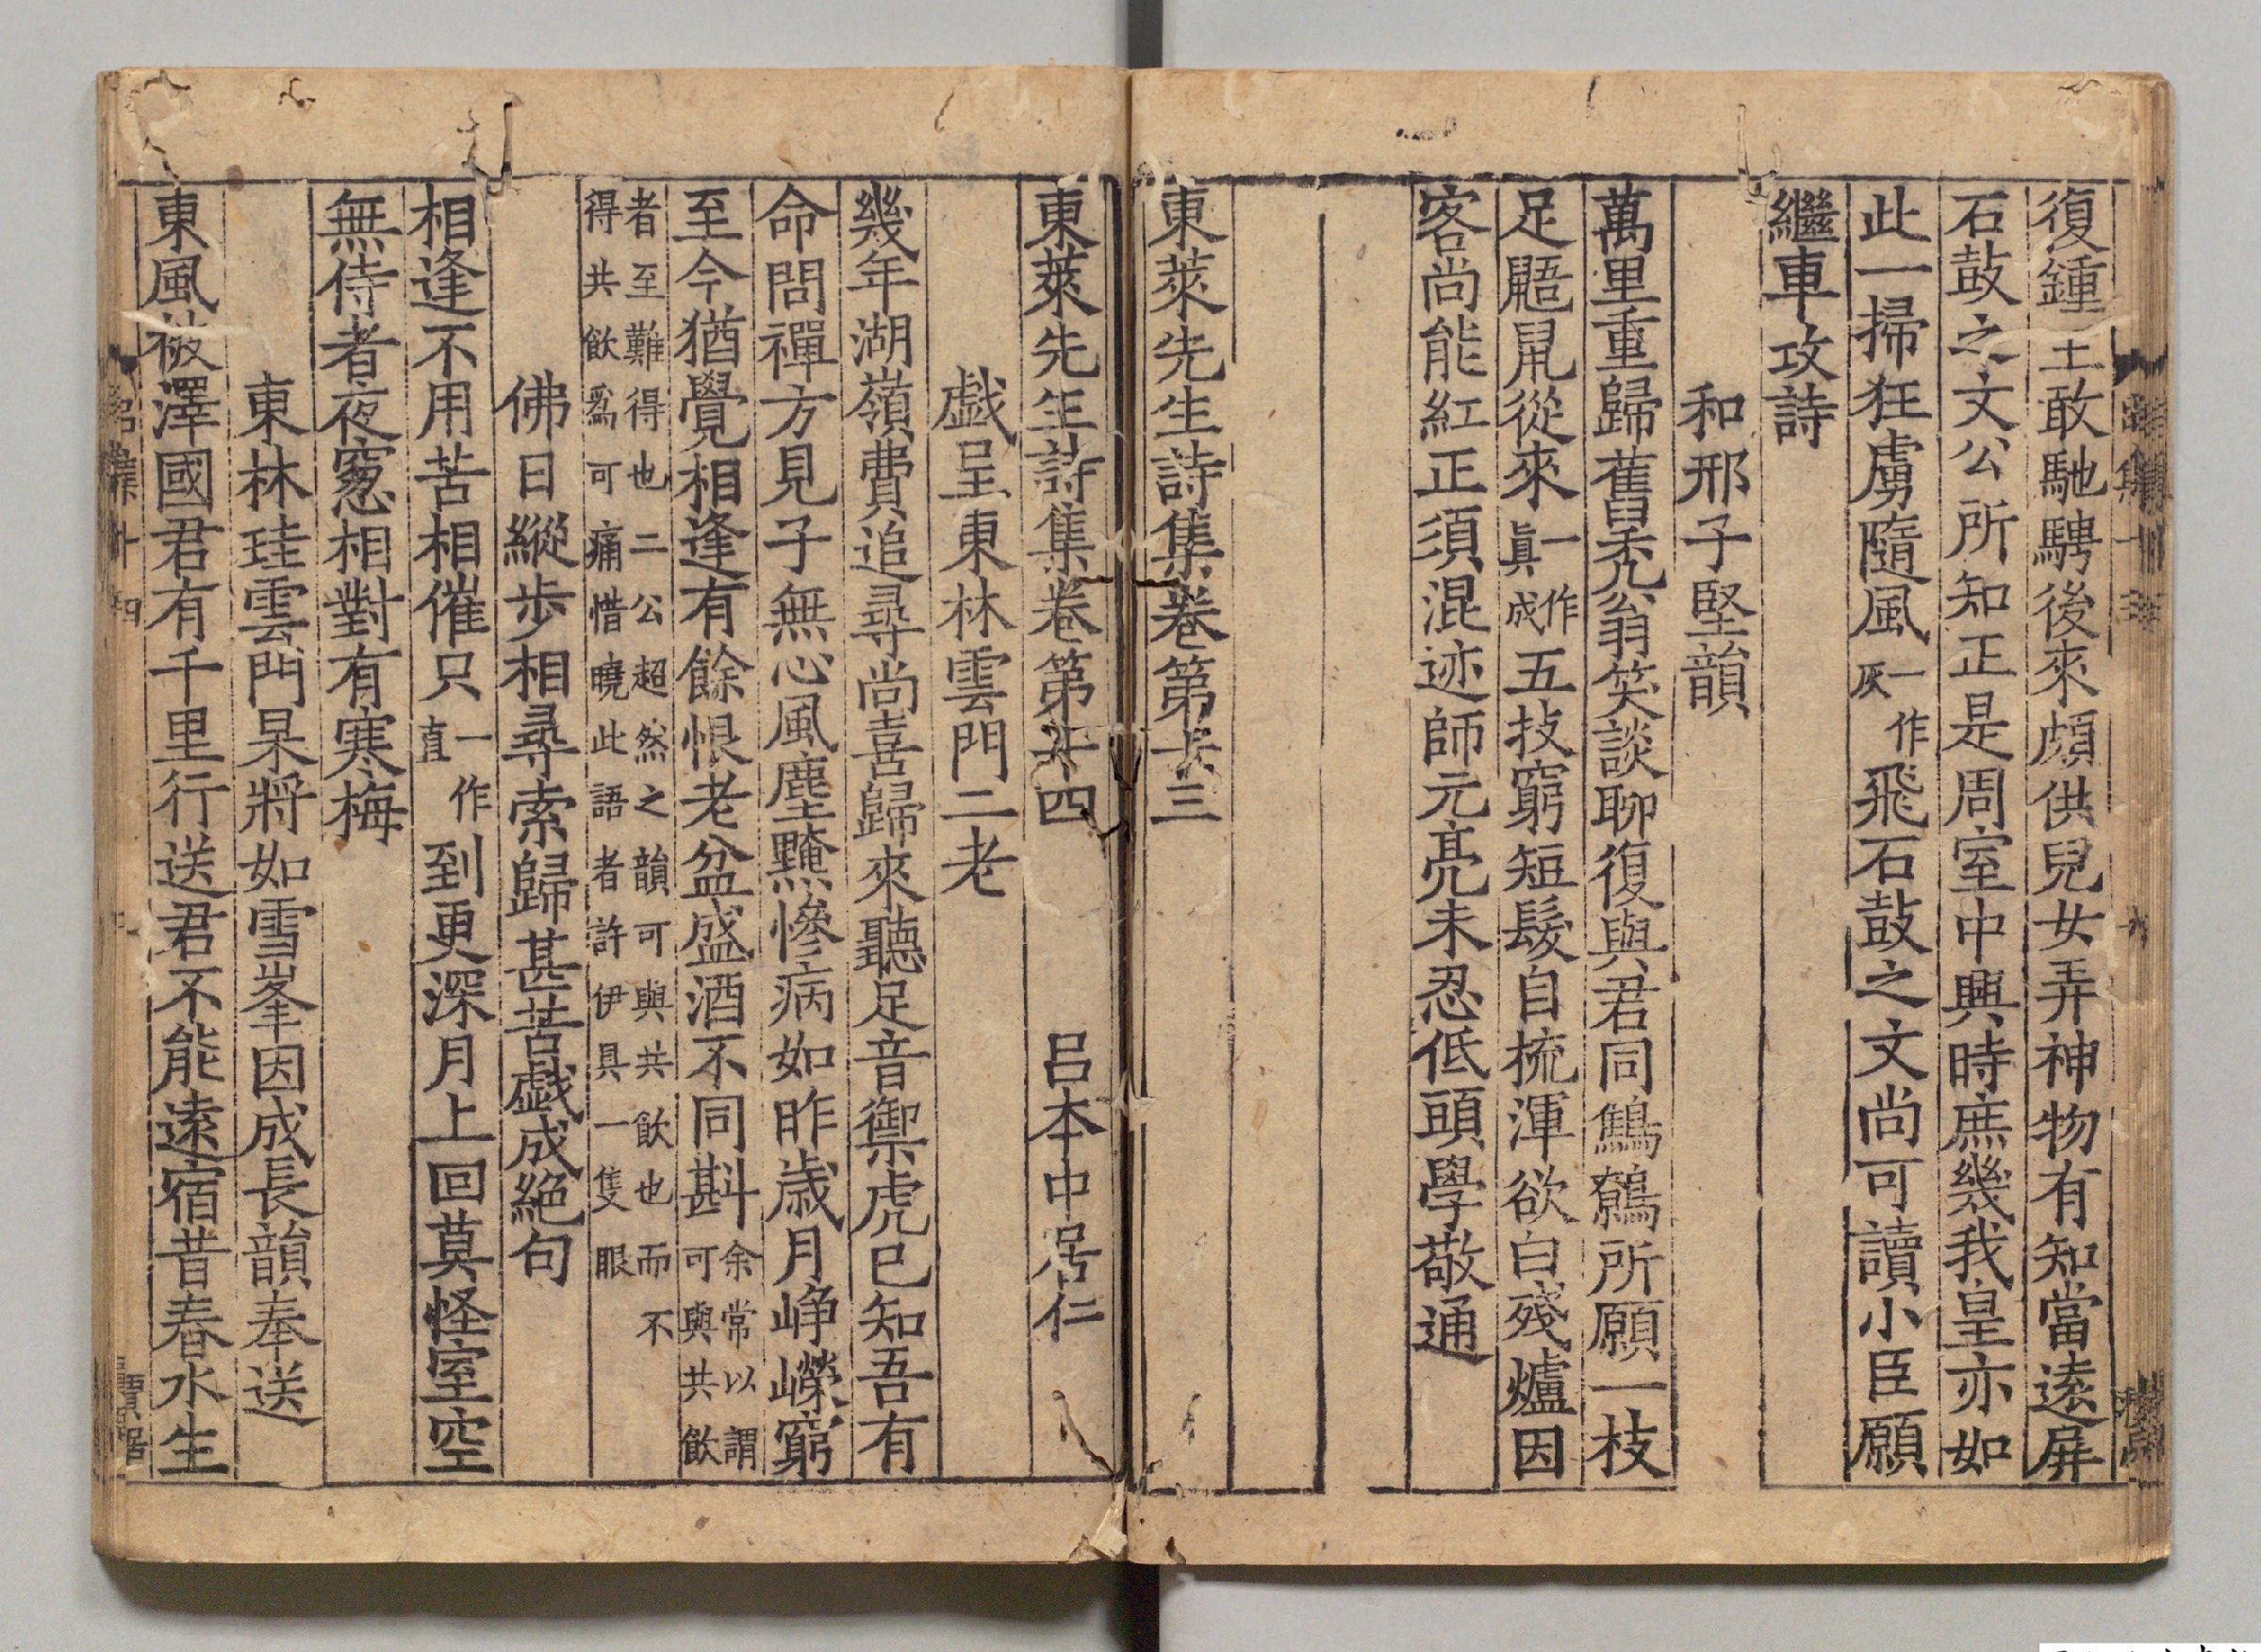 復鍾王敢馳騁後來頗供兒女弄神物有知當逺屏
石鼓之文公所知正是周室中興時庶幾我皇亦如
此一掃狂虜隨風一作灰飛石鼓之文尚可讀小臣願
繼車攻詩
和邢子堅韻
萬里重歸舊禿翁笑談聊復與君同鷦鷯所願一枝
足鼯鼠從來一作眞成五技窮短髮自梳渾欲白殘爐因
客尚能紅正須混迹師元亮未忍低頭學敬通
東萊先生詩集卷第十三
東萊先生詩集卷第十四 呂本中居仁
戯呈東林雲門二老
幾年湖嶺費追尋尚喜歸來聽足音禦虎已知吾有
命問禪方見子無心風塵黤慘病如昨歳月崢嶸窮
至今猶覺相逢有餘恨老盆盛酒不同斟余常以謂可與共飲
者至難得也二公超然之韻可與共飲也而不
得共飲爲可痛惜曉此語者許伊具一隻眼
佛日縱步相尋索歸甚苦戯成絶句
相逢不用苦相催只一作直到更深月上回莫怪室空
無侍者夜窻相對有寒梅
東林珪雲門杲將如雪峯因成長韻奉送
東風被澤國君有千里行送君不能逺宿昔春水生